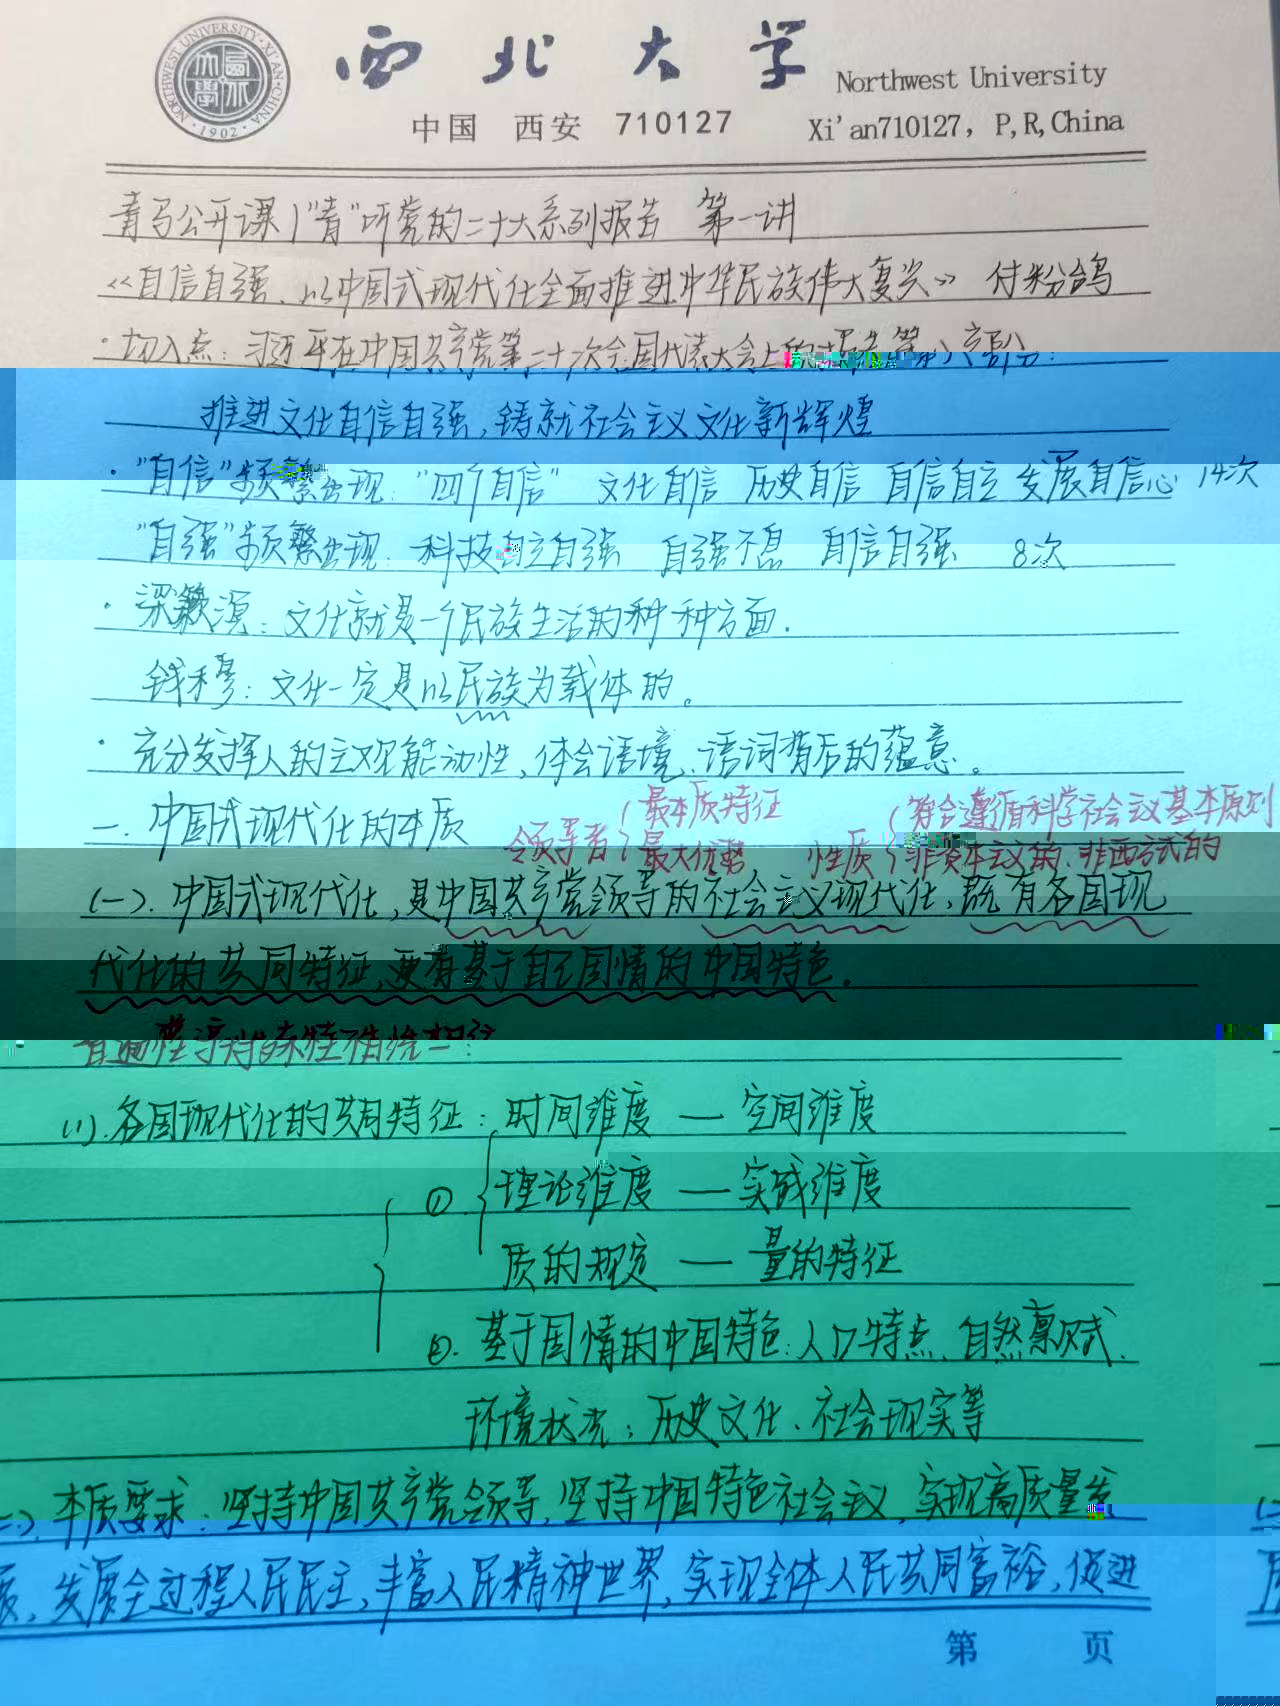 西北大学
Northwest University
中国 西安 710127 Xi'an710127, P,R,China
NORTHWEST UNIVERSITY·XI'AN·CHINA
·1902·
青马公开课 | "青"听党的二十大系列报告 第一讲
《自信自强、以中国式现代化全面推进中华民族伟大复兴》 付粉鸽
·切入点：习近平在中国共产党第二十次全国代表大会上的报告第八部分：
推进文化自信自强，铸就社会主义文化新辉煌
·"自信"频繁出现："四个自信" 文化自信 历史自信 自信自立 发展自信心 14次
"自强"频繁出现：科技自立自强 自强不息 自信自强 8次
·梁漱溟：文化就是一个民族生活的种种方面．
钱穆：文化一定是以民族为载体的。
·充分发挥人的主观能动性，体会语境、语词背后的蕴意。
最本质特征 符合遵循科学社会主义基本原则
一．中国式现代化的本质 领导者 最大优势 性质 非资本主义的、非西方式的
(一)．中国式现代化，是中国共产党领导的社会主义现代化，既有各国现
代化的共同特征，更有基于自己国情的中国特色．
普遍性与特殊性相统一
(1)．各国现代化的共同特征：时间维度 — 空间维度
①． 理论维度 — 实践维度
质的规定 — 量的特征
②．基于国情的中国特色：人口特点、自然禀赋、
环境状况；历史文化、社会现实等
二)．本质要求：坚持中国共产党领导，坚持中国特色社会主义，实现高质量发
展，发展全过程人民民主，丰富人民精神世界，实现全体人民共同富裕，促进
第 页